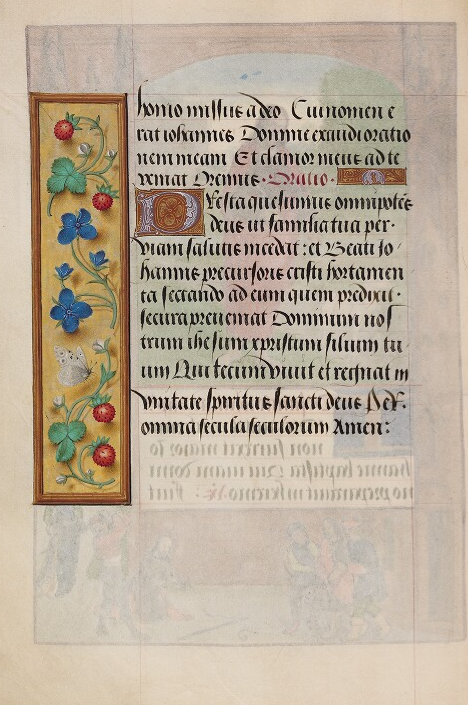 homo missus a deo Cui nomen e
rat iohannes Domine exaudi oratio
nem meam Et clamor meus ad te
veniat Oremus · Oratio ·
Presta quesumus omnipotēs
deus ut familia tua per ·
viam salutis incedat : et Beati Jo
hannis precursoris cristi hortamen
ta sectando ad eum quem predixit ·
secura preveniat Dominum nos
trum ihesum xpristum filium tu
um Qui tecum vivit et regnat in
unitate spiritus sancti deus Per ·
omnia secula seculorum Amen :